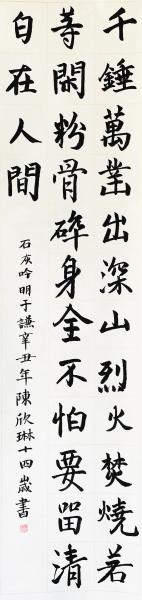 千錘萬鑿出深山烈火焚燒若
等閑粉骨碎身全不怕要留清
白在人間
石灰吟明于謙辛丑年陳欣琳十四歲書